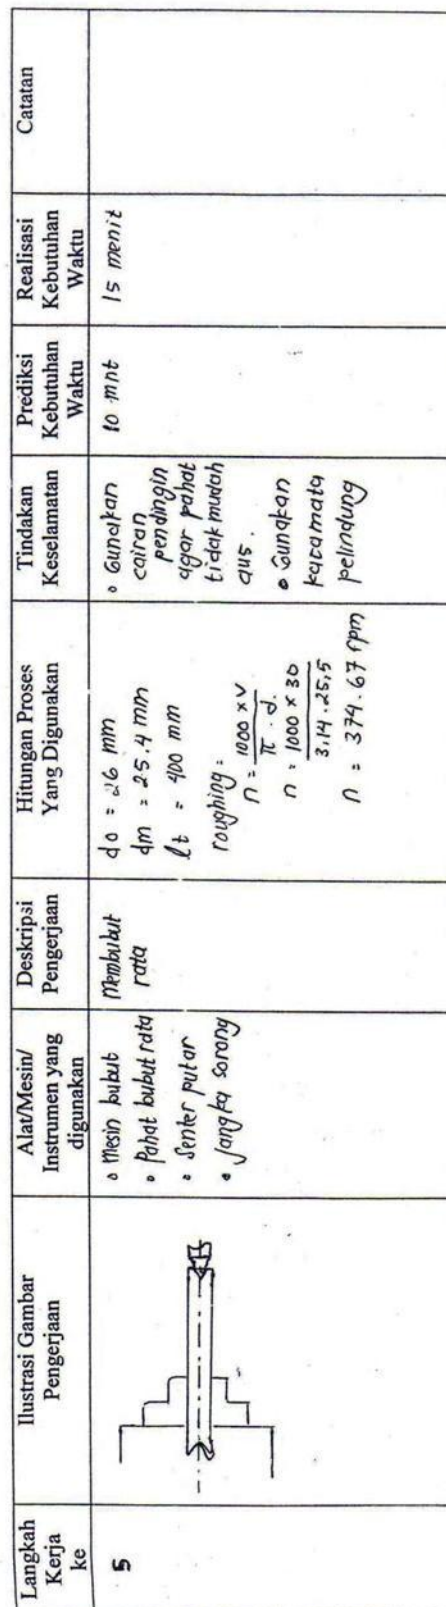 Langkah
Kerja
ke
Ilustrasi Gambar
Pengerjaan
Alat/Mesin/
Instrumen yang
digunakan
Deskripsi
Pengerjaan
Hitungan Proses
Yang Digunakan
Tindakan
Keselamatan
Prediksi
Kebutuhan
Waktu
Realisasi
Kebutuhan
Waktu
Catatan
5
• Mesin bubut
• Pahat bubut rata
• Senter putar
• Jangka sorong
Membubut
rata
do = 26 mm
dm = 25.4 mm
lt = 400 mm
roughing =
n = 1000 x v
π . d.
n = 1000 x 30
3,14 . 25,5
n = 374.67 rpm
• Gunakan
cairan
pendingin
agar pahat
tidak mudah
aus.
• Gunakan
kacamata
pelindung
10 mnt
15 menit